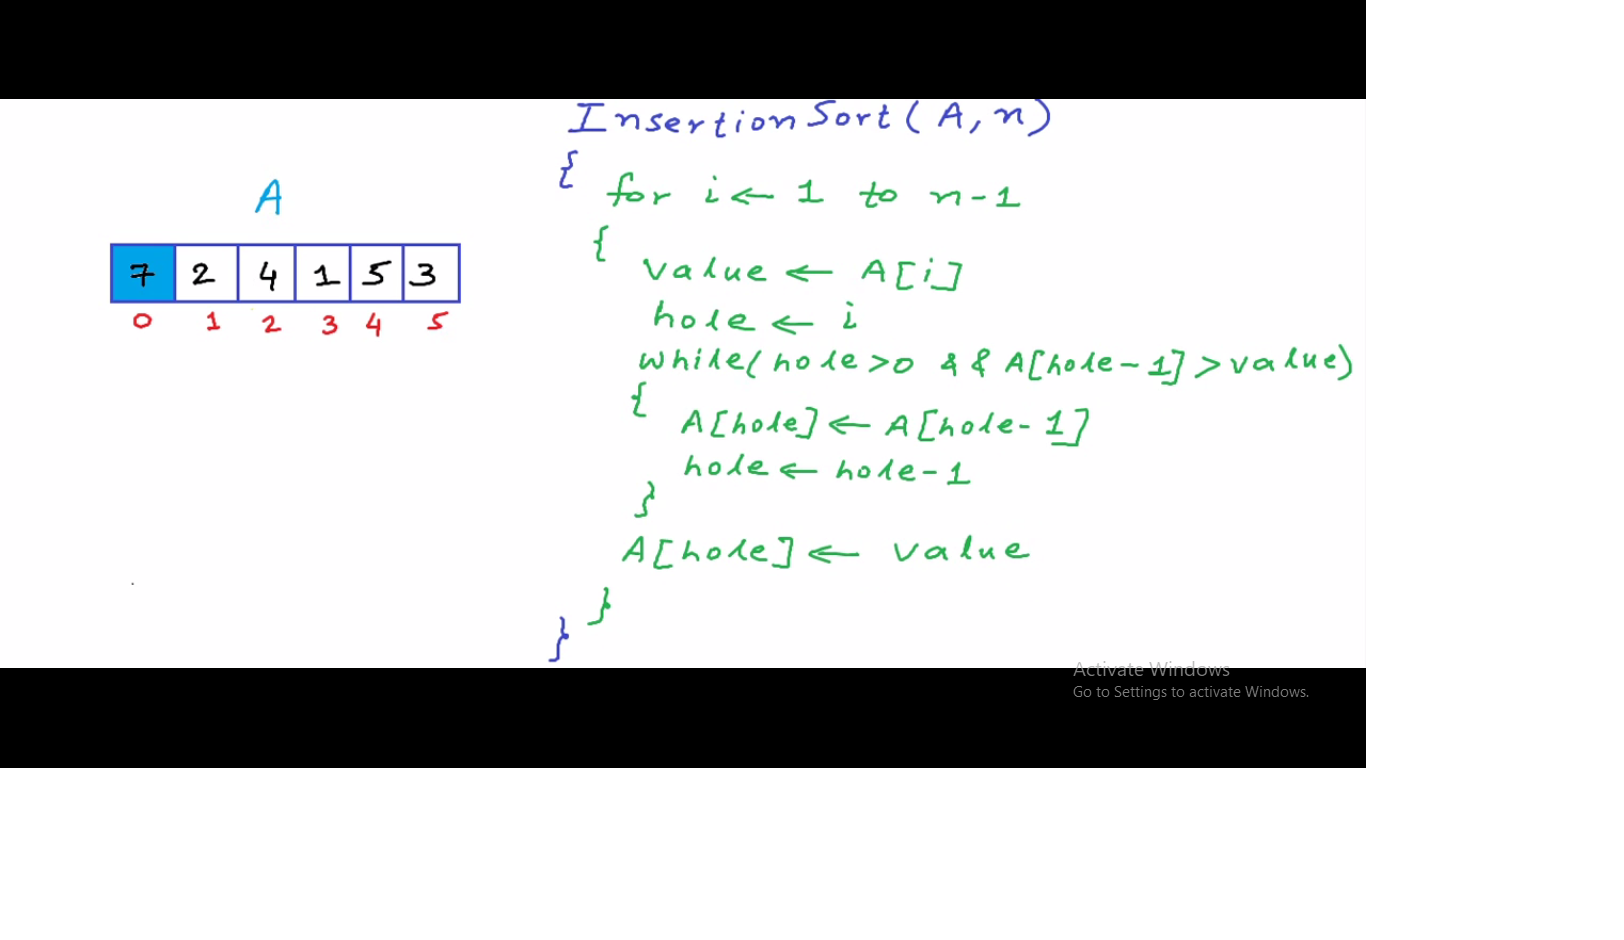 InsertionSort(A, n)
{
for i ← 1 to n-1
{
value ← A[i]
hole ← i
while(hole>0 && A[hole-1]>value)
{
A[hole] ← A[hole-1]
hole ← hole-1
}
A[hole] ← value
}
}
A
7 2 4 1 5 3
0 1 2 3 4 5
Activate Windows
Go to Settings to activate Windows.